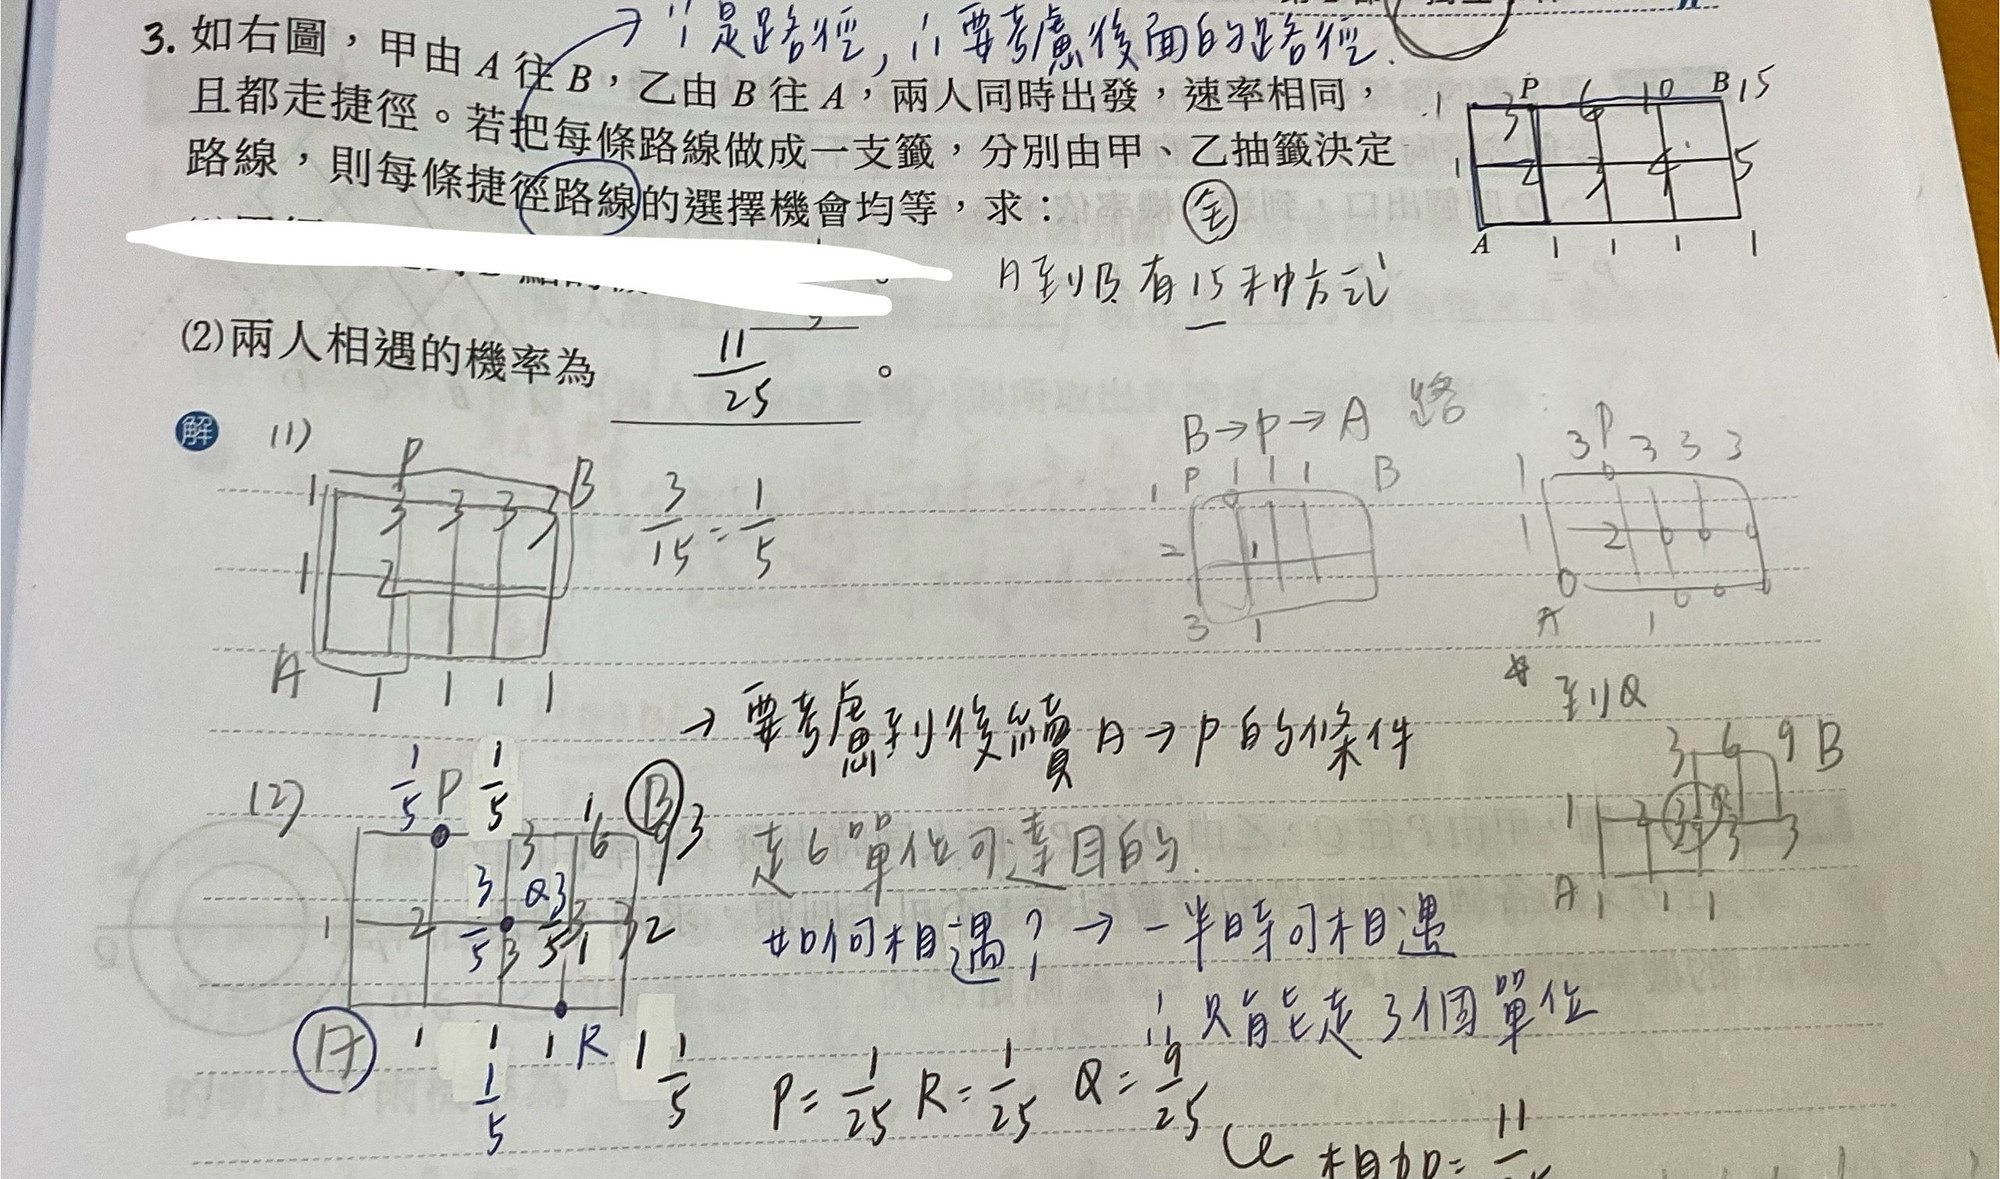 → ∵是路徑，∴要考慮後面的路徑.
3. 如右圖，甲由A往B，乙由B往A，兩人同時出發，速率相同，
且都走捷徑。若把每條路線做成一支籤，分別由甲、乙抽籤決定
路線，則每條捷徑路線的選擇機會均等，求：
1 3 P 6 10 B 15
1 2 3 4 5
A 1 1 1 1
全
A到B有15種方式
(2)兩人相遇的機率為 11/25 。
解 (1)
P B
1 3 3 3 3
1 2
A 1 1 1 1
3/15 = 1/5
B→P→A 路
P 1 1 1 B
1
2 1
3 1
3 P 3 3 3
1
1 2 0 0 0
0
A 1 0 0
→ 要考慮到後續A→P的條件
到Q
3 6 9 B
1 2 3 Q 3 3
A 1 1 1
(2)
1/5 P 1/5 1 B 3
3 6 9
1 2 3/5 Q 3/5 3 2
3 1
A 1 1 1 R 1 1/5
1/5
走6單位可達目的.
如何相遇？→一半時可相遇
∴只能走3個單位
P= 1/25 R= 1/25 Q= 9/25
相加= 11